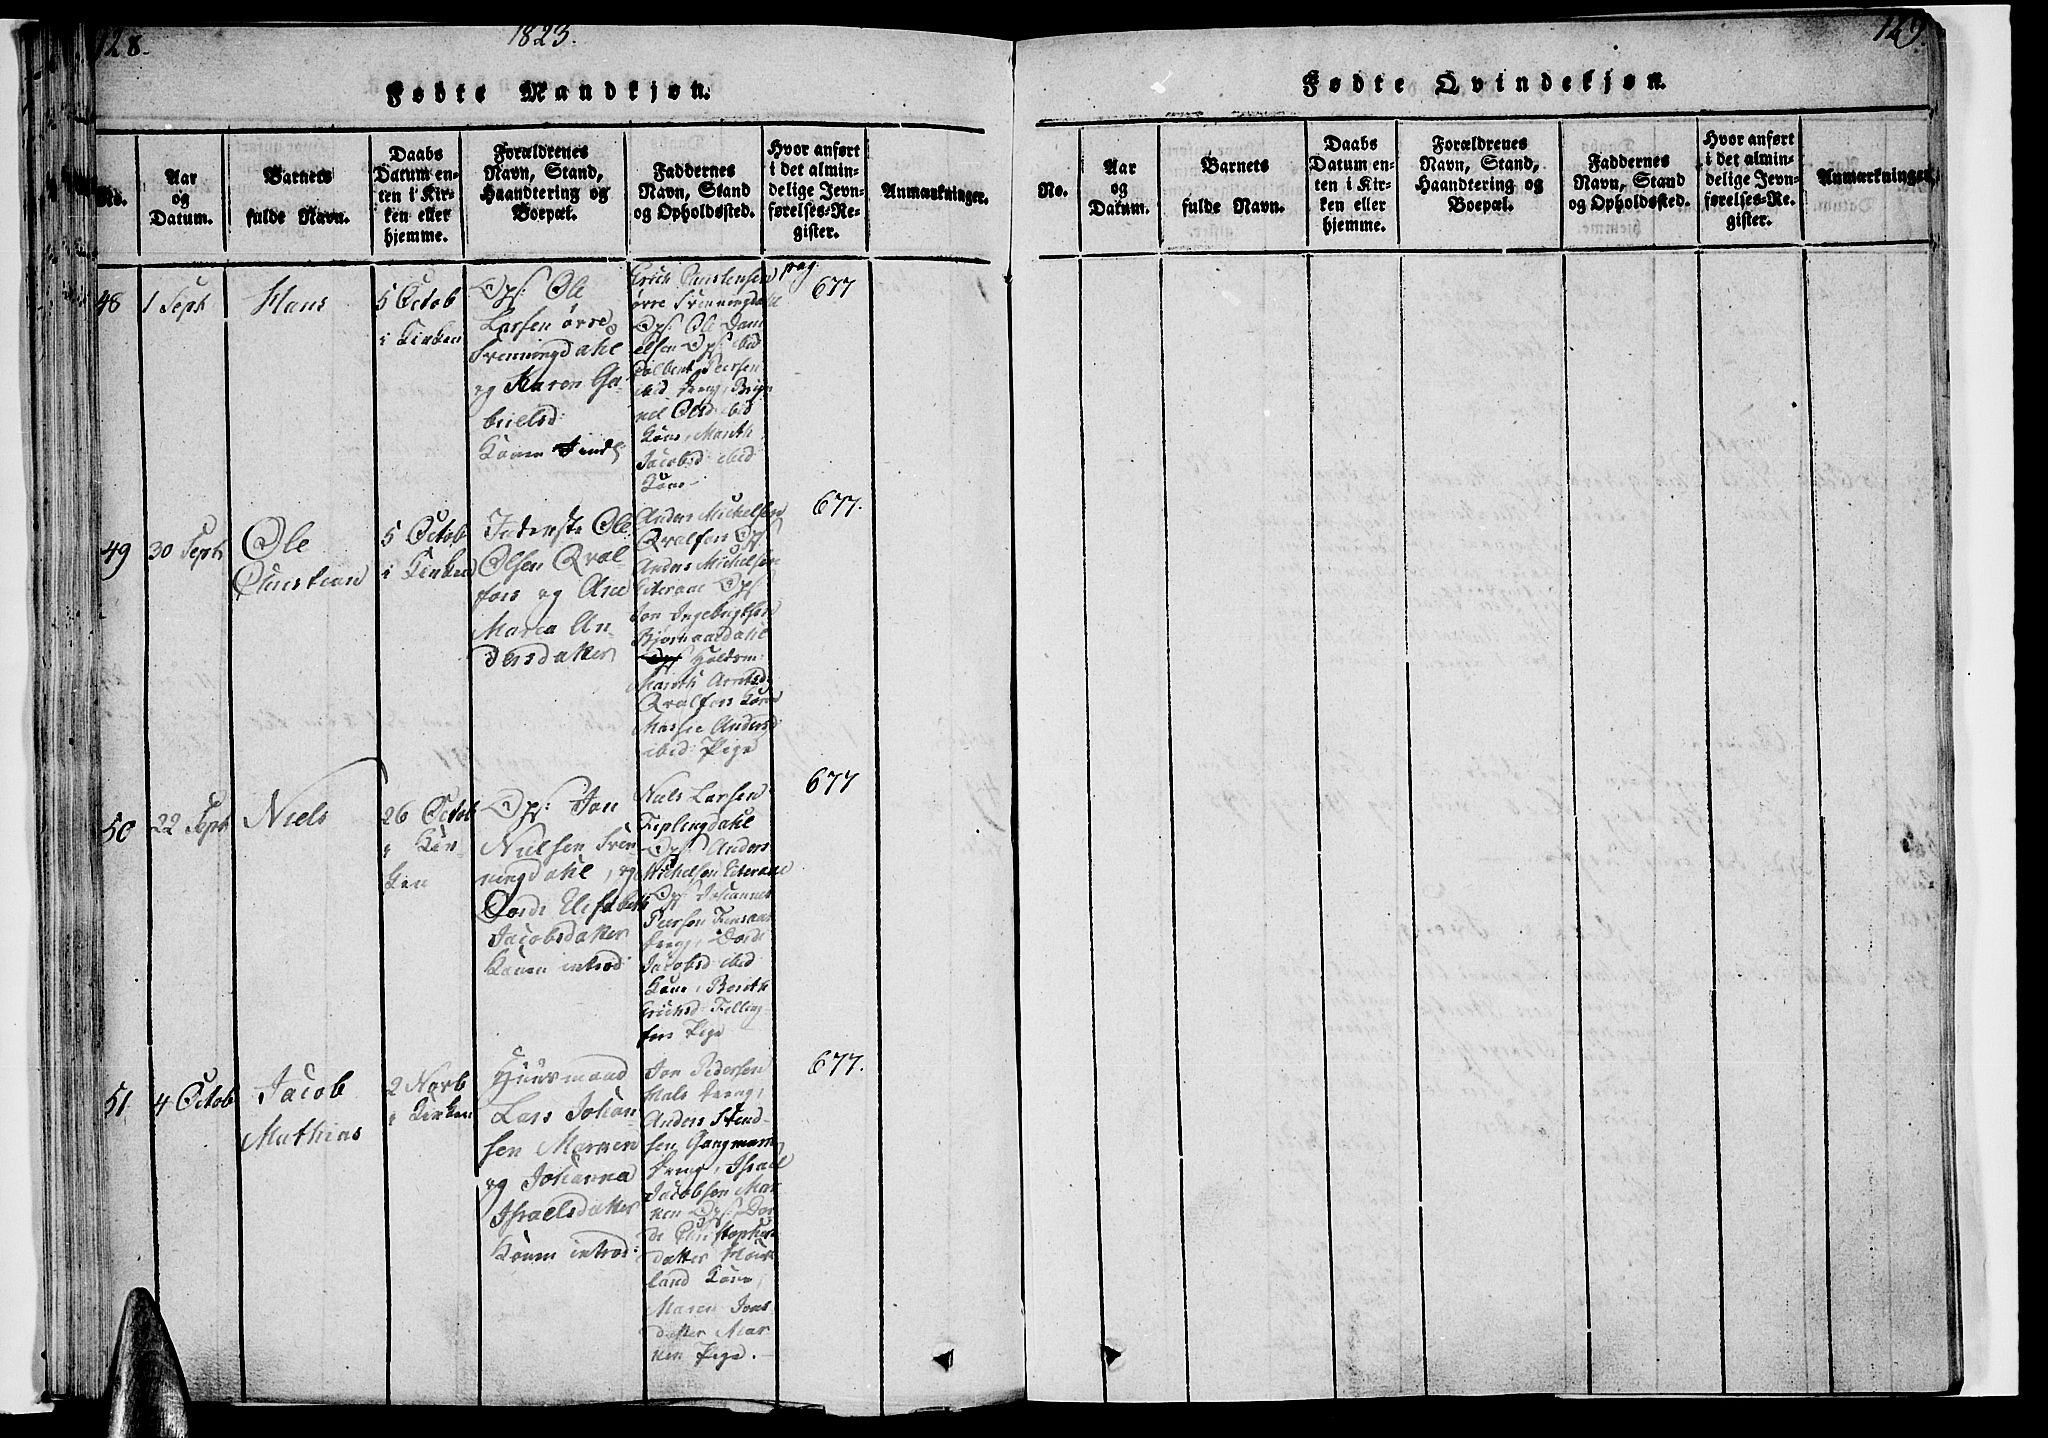 128.
1823.
Fødte Mandkjøn.
No.
Aar
og
Datum.
Barnets
fulde Navn.
Daabs
Datum en-
ten i Kir-
ken eller
hjemme.
Forældrenes
Navn, Stand,
Haandtering og
Boepæl.
Faddernes
Navn, Stand
og Opholdssted.
Hvor anført
i det almin-
delige Jevn-
førelses-Re-
gister.
Anmærkninger.
48
1 Septb
Hans
5 Octob
i Kirken
Ops: Ole
Larsen øvre
Svenningdahl
og Karen Ga-
brielsd:
Konen
Erich Christensen
øvre Svenningdahl
Ops: Ole Dani
elsen Ops: ibid
Peersen
ibid Dreng,
Olsd: ibid
Kone, Marith
Jacobsd: ibid
Kone
pag
677
49
30 Septb
Ole
Christian
5 Octob
i Kirken
Inderste Ole
Olsen Qval
fors og Ane
Maria An-
dersdatter
Anders Michelsen
Qvalfors Ops
Anders Michelsen
Eiteraae Ops
Jon Ingebrigtsen
Bjornaaedahl
Marith Arntsd:
Qvalfors Kone
Andersd:
ibid: Pige
677.
50
22 Septb
Niels
26 Octob
i Kir-
ken
Ops: Jon
Nielsen Sven-
ningdahl, og
Dorde Elisabeth
Jacobsdatter
Konen introd:
Niels Larsen
Fiplingdahl
Ops Anders
Michelsen Eiteraae
Ops Johannes
Peersen
Dreng, Dorde
Jacobsd: ibid
Kone, Berith
Erichsd: Felling-
fors Pige
677
51
4 Octob
Jacob
Mathias
2 Novb
i Kirken
Huusmand
Lars Johan-
sen Marnen
og Johanna
Israelsdatter
Konen introd:
Jon Pedersen
Hals Dreng,
Anders
sen
Dreng, Israel
Jacobsen Mar
nen Ops: Dor
de Christophers
datter
land Kone,
Maren Jons
datter Mar
nen Pige.
677.
129.
Fødte Qvindekjøn.
No.
Aar
og
Datum.
Barnets
fulde Navn.
Daabs
Datum en-
ten i Kir-
ken eller
hjemme.
Forældrenes
Navn, Stand,
Haandtering og
Boepæl.
Faddernes
Navn, Stand
og Opholdssted.
Hvor anført
i det almin-
delige Jevn-
førelses-Re-
gister.
Anmærkninger.